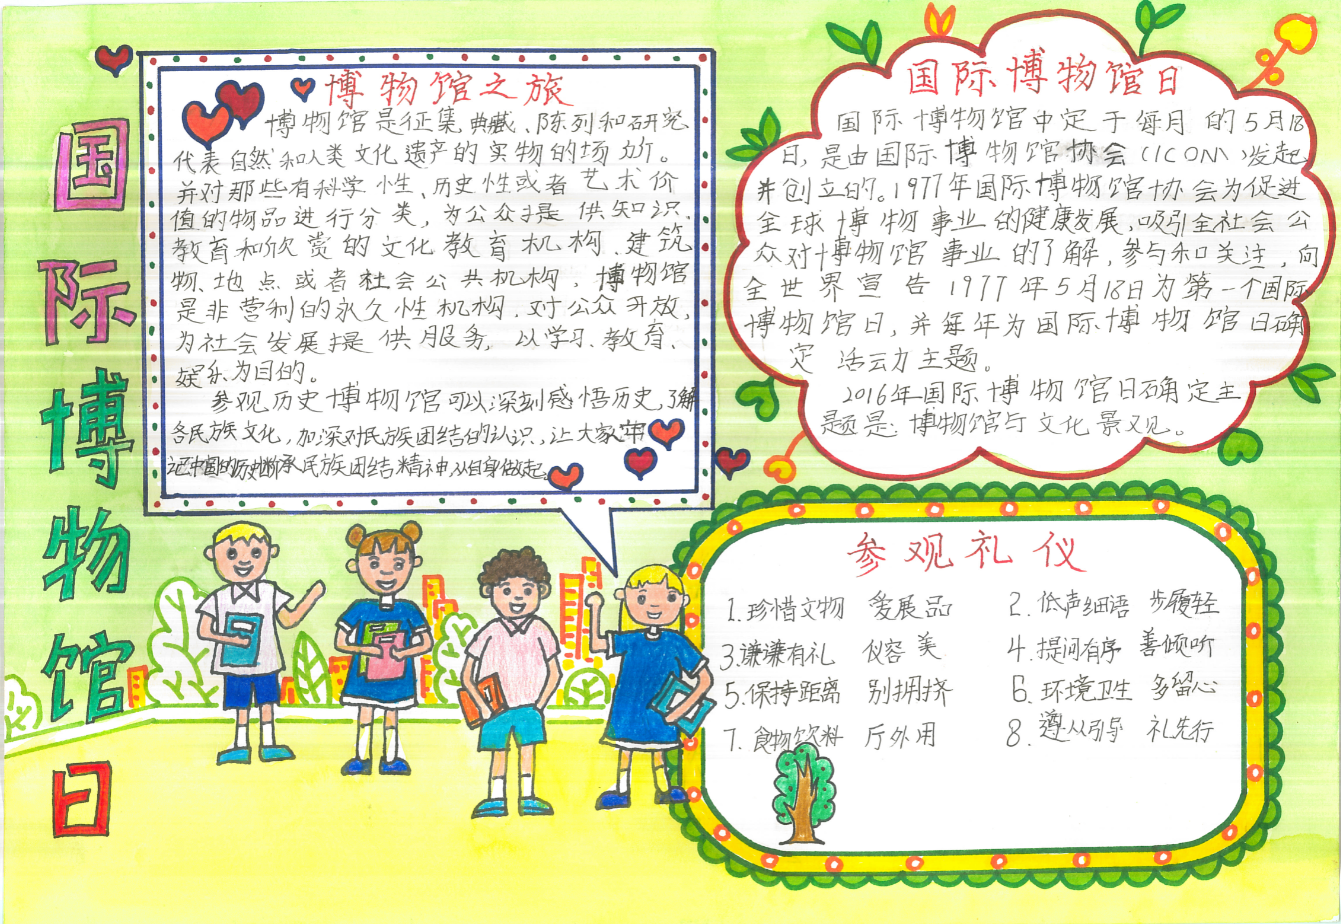 国际博物馆日
博物馆之旅
博物馆是征集、典藏、陈列和研究
代表自然和人类文化遗产的实物的场所。
并对那些有科学性、历史性或者艺术价
值的物品进行分类,为公众提供知识、
教育和欣赏的文化教育机构、建筑
物、地点或者社会公共机构,博物馆
是非营利的永久性机构,对公众开放,
为社会发展提供服务,以学习、教育、
娱乐为目的。
参观历史博物馆可以深刻感悟历史,了解
各民族文化,加深对民族团结的认识,让大家牢
记中国的历史 承民族团结精神从自身做起。
国际博物馆日
国际博物馆中定于每月的5月18
日是由国际博物馆协会(ICOM)发起
并创立的。1977年国际博物馆协会为促进
全球博物事业的健康发展,吸引全社会公
众对博物馆事业的了解,参与和关注,向
全世界宣告1977年5月18日为第一个国际
博物馆日,并每年为国际博物馆日确
定活动主题。
2016年国际博物馆日确定主
题是:博物馆与文化景观。
参观礼仪
1.珍惜文物 爱展品
2.低声细语 步履轻
3.谦谦有礼 仪容美
4.提问有序 善倾听
5.保持距离 别拥挤
6.环境卫生 多留心
7.食物饮料 厅外用
8.遵从引导 礼先行